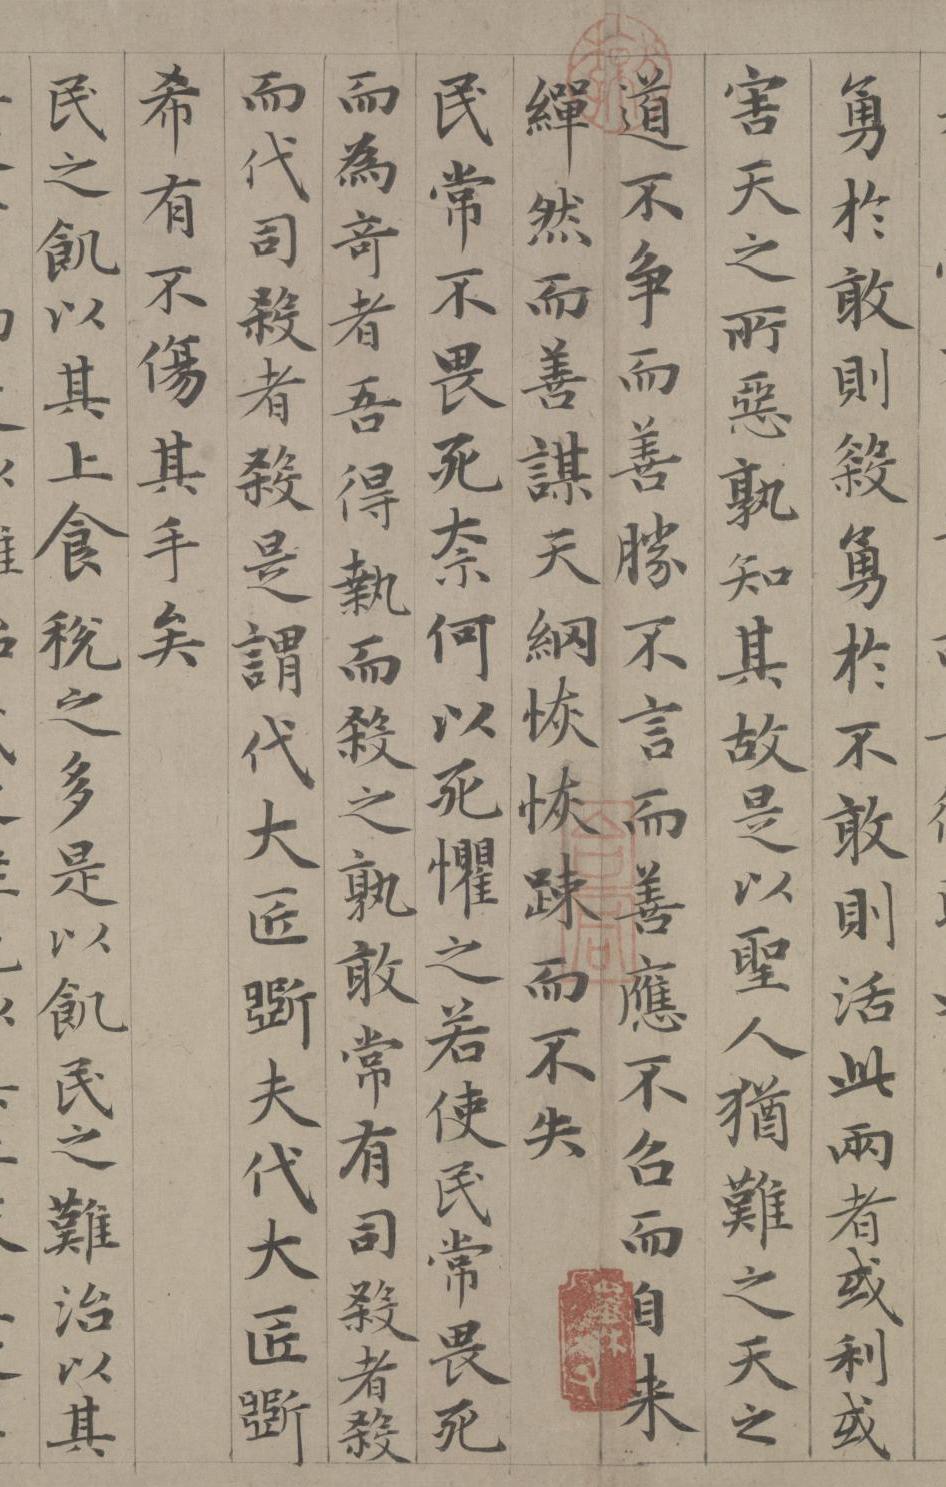 勇於敢則殺勇於不敢則活此兩者或利或
害天之所惡孰知其故是以聖人猶難之天之
道不争而善勝不言而善應不召而自来
繟然而善謀天網恢恢踈而不失
民常不畏死奈何以死懼之若使民常畏死
而為奇者吾得執而殺之孰敢常有司殺者殺
而代司殺者殺是謂代大匠斲夫代大匠斲
希有不傷其手矣
民之飢以其上食稅之多是以飢民之難治以其